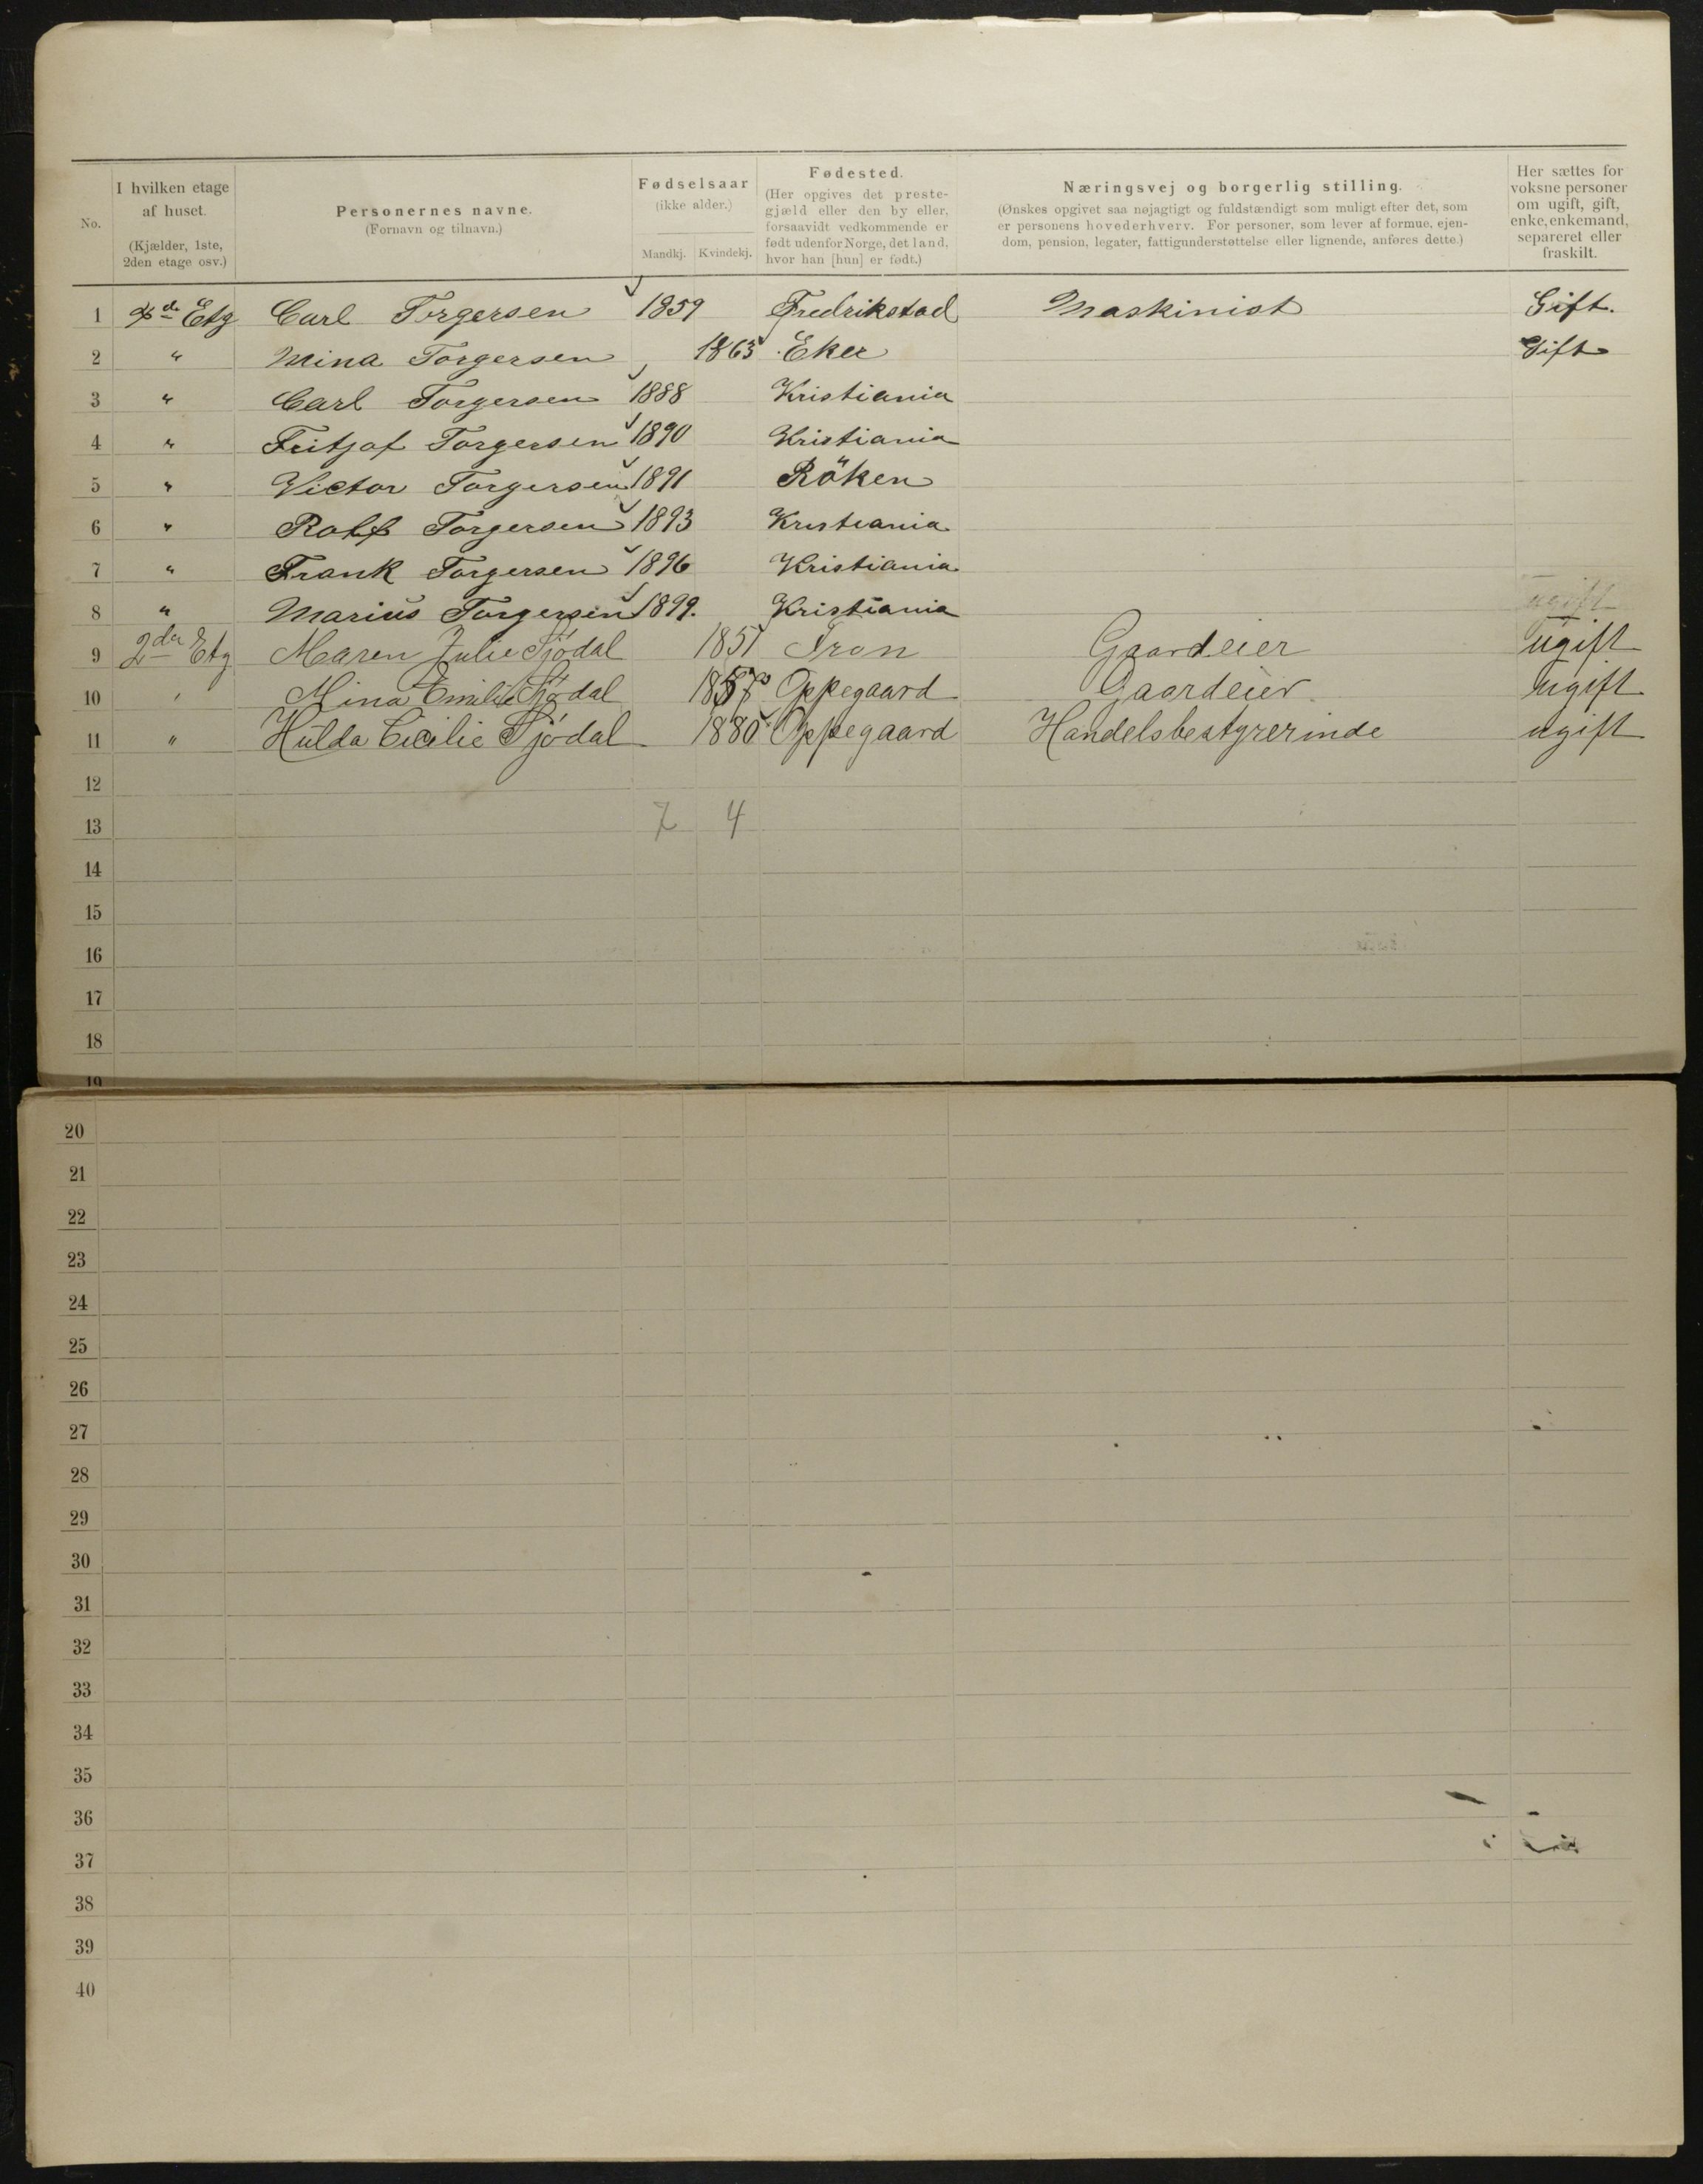 No.
I hvilken etage af huset. (Kjælder, 1ste, 2den etage osv.)
Personernes navne. (Fornavn og tilnavn.)
Fødselsaar (ikke alder.)
Mandkj. Kvindekj.
Fødested. (Her opgives det prestegjæld eller den by eller, forsaavidt vedkommende er født udenfor Norge, det land, hvor han [hun] er født.)
Næringsvej og borgerlig stilling. (Ønskes opgivet saa nøjagtigt og fuldstændigt som muligt efter det, som er personens hovederhverv. For personer, som lever af formue, ejendom, pension, legater, fattigunderstøttelse eller lignende, anføres dette.)
Her sættes for voksne personer om ugift, gift, enke, enkemand, separeret eller fraskilt.
1 Etg Carl Torgersen 1859 Fredrikstad Maskinist Gift.
2 " Mina Torgersen 1863 Eker Gift
3 " Carl Torgersen 1888 Kristiania
4 " Fritjof Torgersen 1890 Kristiania
5 " Victor Torgersen 1891 Röken
6 " Rolf Torgersen 1893 Kristiania
7 " Frank Torgersen 1896 Kristiania
8 " Marius Torgersen 1899. Kristiania ugift
9 2den Etg Maren Julie Sjödal 1851 Tron Gaardeier ugift
10 " Mina Emilie Sjödal 1857 Oppegaard Gaardeier ugift
11 " Hulda Cicilie Sjödal 1880 Oppegaard Handelsbestyrerinde ugift
12
13 7 4
14
15
16
17
18
19
20
21
22
23
24
25
26
27
28
29
30
31
32
33
34
35
36
37
38
39
40